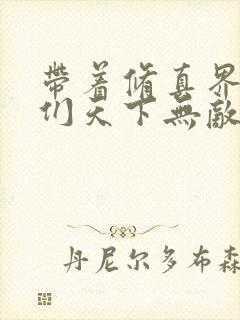 帶着脩真界
们天下無敵
丹尼尔多布森